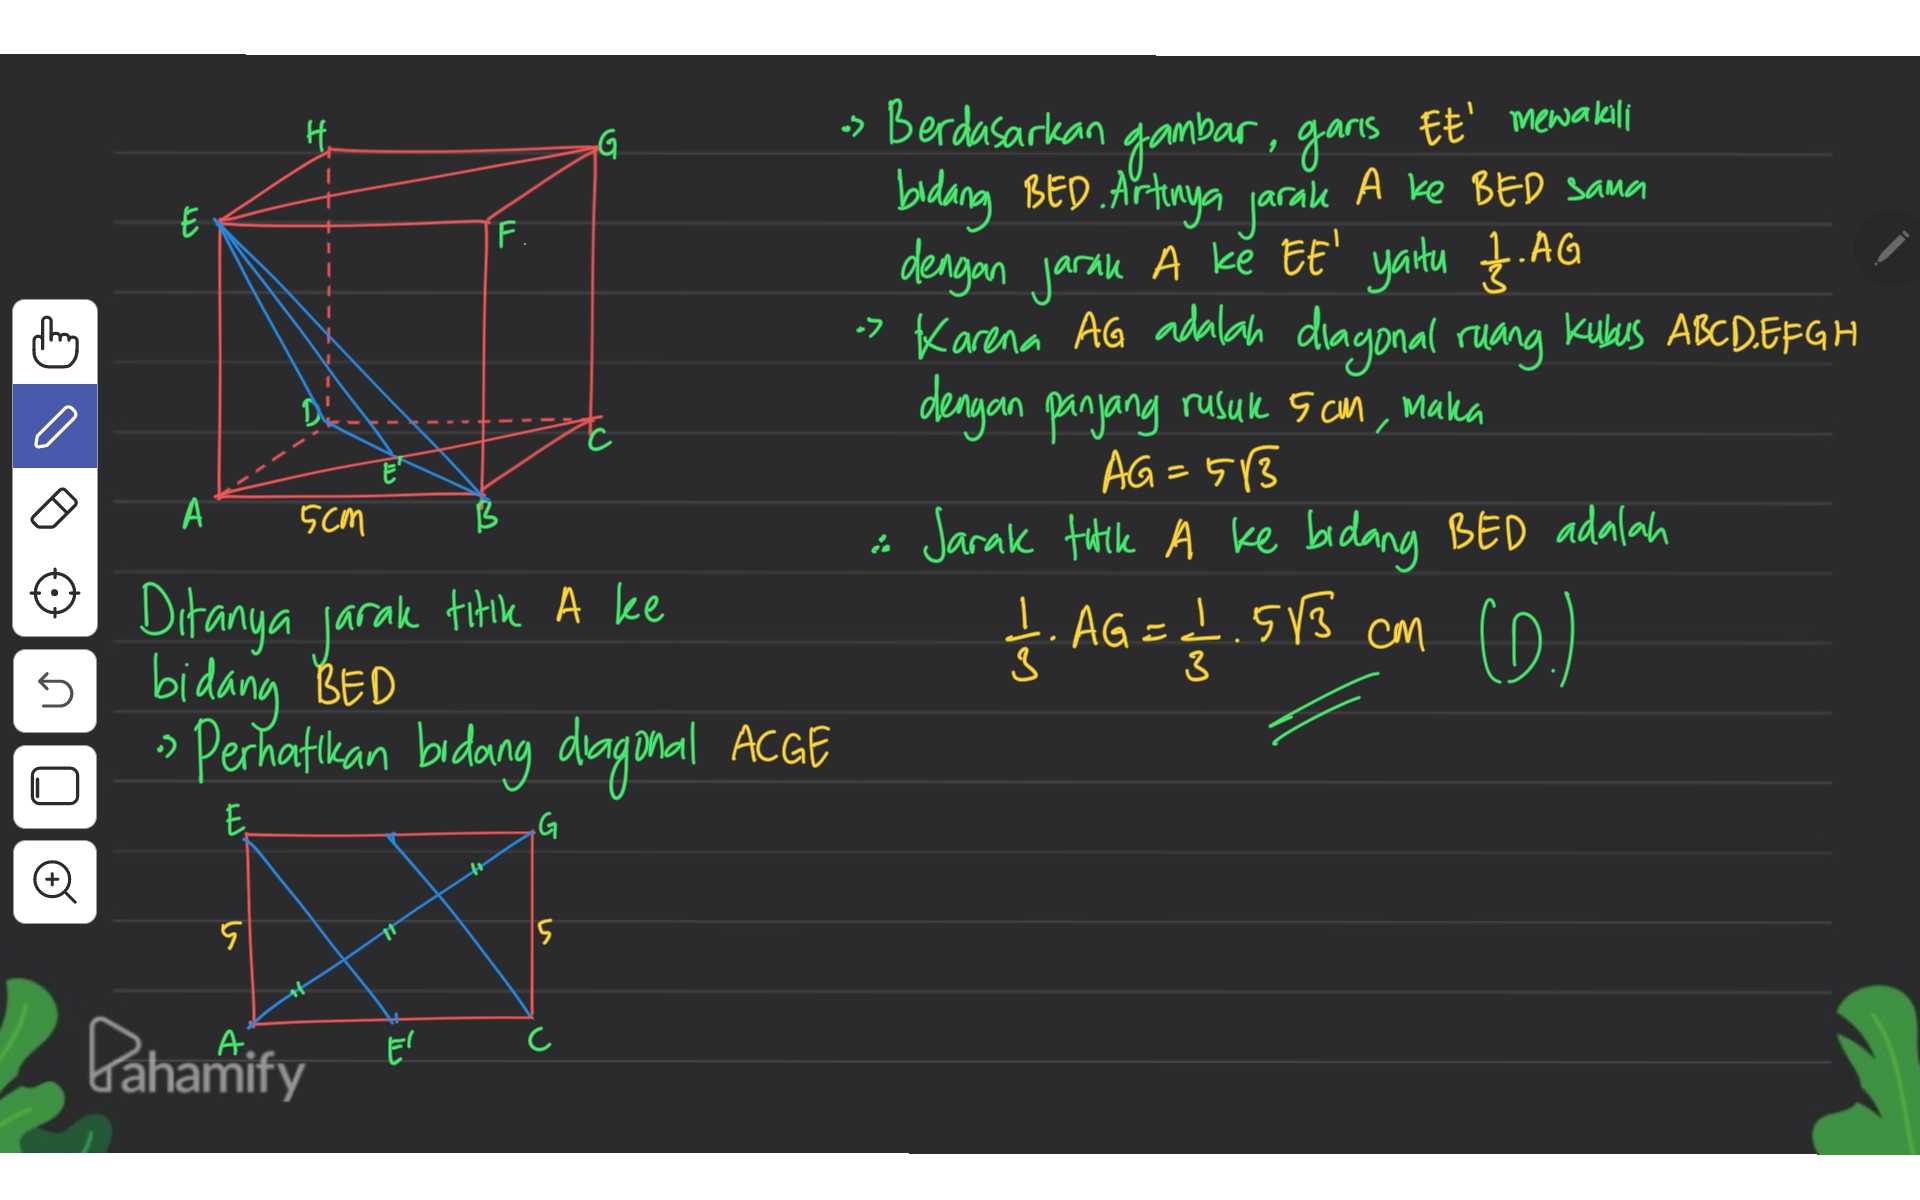 H
G
E
F.
D
C
E'
A
5cm
B
Ditanya jarak titik A ke
bidang BED
·> Perhatikan bidang diagonal ACGE
E
G
5
5
A
E'
C
·> Berdasarkan gambar, garis EE' mewakili
bidang BED. Artinya jarak A ke BED sama
dengan jarak A ke EE' yaitu 1/3 . AG
·> Karena AG adalah diagonal ruang kubus ABCD.EFGH
dengan panjang rusuk 5 cm, maka
AG = 5√3
∴ Jarak titik A ke bidang BED adalah
1/3 . AG = 1/3 . 5√3 cm (D.)
Pahamify